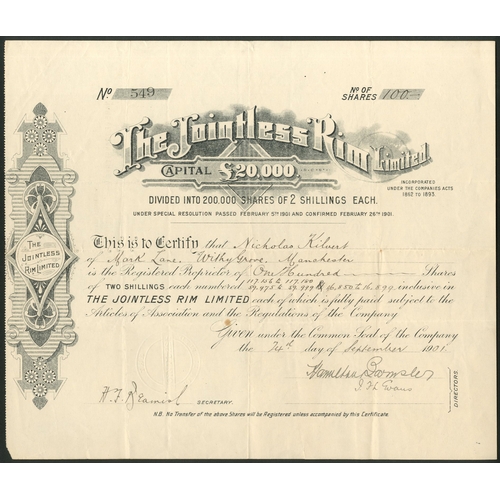 No 549
No OF SHARES 100
The Jointless Rim Limited.
CAPITAL £20,000,
INCORPORATED UNDER THE COMPANIES ACTS 1862 TO 1893.
DIVIDED INTO 200,000 SHARES OF 2 SHILLINGS EACH.
UNDER SPECIAL RESOLUTION PASSED FEBRUARY 5TH 1901 AND CONFIRMED FEBRUARY 26TH 1901.
This is to Certify that Nicholas Kilvert
of Mark Lane, Withy Grove, Manchester
is the Registered Proprietor of One Hundred Shares
of TWO SHILLINGS each numbered inclusive in
THE JOINTLESS RIM LIMITED each of which is fully paid subject to the
Articles of Association and the Regulations of the Company
Given under the Common Seal of the Company
the day of September 1901.
THE JOINTLESS RIM LIMITED.
H. F. Beamish SECRETARY.
DIRECTORS.
N.B. No Transfer of the above Shares will be Registered unless accompanied by this Certificate.